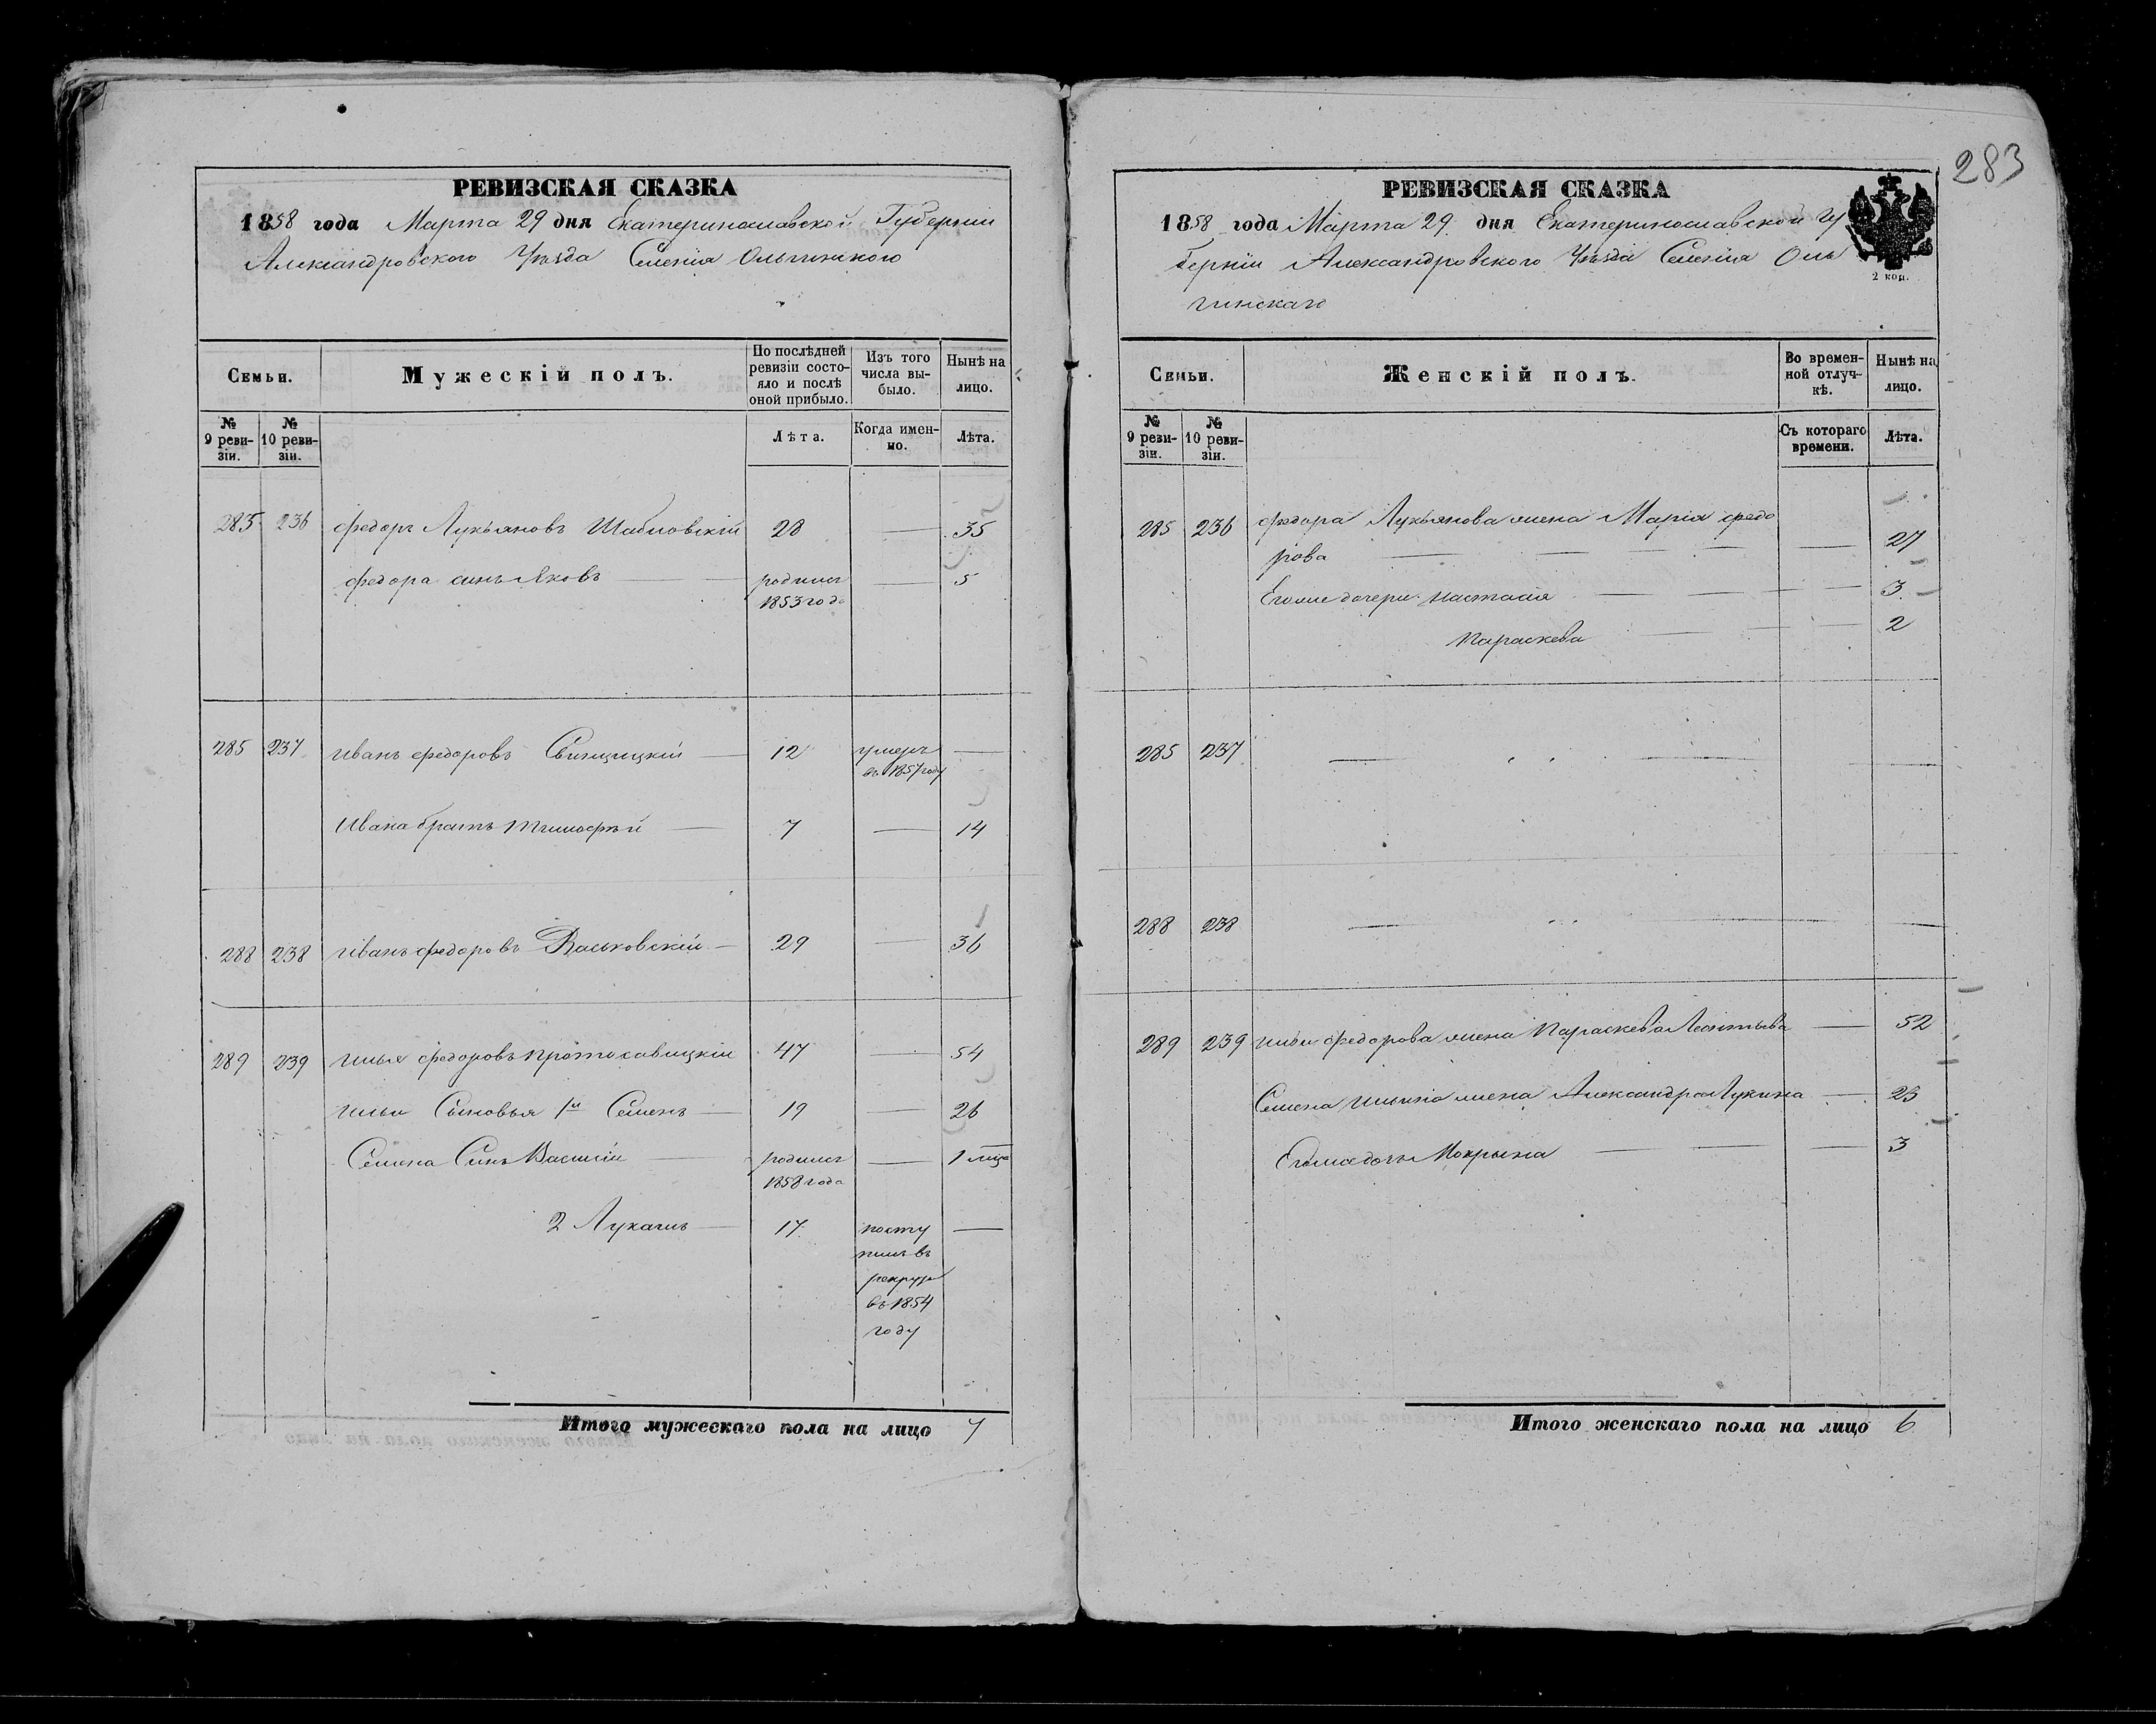 РЕВИЗСКАЯ СКАЗКА
1858 года Марта 29 дня Екатеринославской Губерніи
Александровского Уѣзда Селенія Ольгинского
Семьи.
Мужескій полъ.
По послѣдней ревизіи состояло и послѣ оной прибыло.
Изъ того числа выбыло.
Нынѣ на лицо.
№ 9 ревизіи.
№ 10 ревизіи.
Лѣта.
Когда именно.
Лѣта.
285 236 Федоръ Лукьяновъ 28 — 35
Федора сынъ Яковъ — родился — 5
1853 года
285 237 Иванъ Федоровъ — 12 умеръ —
въ 1857 году
Ивана братъ Тимофѣй — 7 — 14
288 238 Иванъ Федоровъ — 29 — 36
289 239 Илья Федоровъ 47 — 54
Ильи Сыновья 1й Семенъ — 19 — 26
Семена Сынъ Василій — родился — 1 мѣс
1858 года
2 Лукачъ — 17 посту —
пилъ въ
рекруты
въ 1854
году
Итого мужескаго пола на лицо 7
283
РЕВИЗСКАЯ СКАЗКА
1858 года Марта 29 дня Екатеринославской Гу
берніи Александровского Уѣзда Селенія Оль
гинскаго
2 коп.
Семьи.
Женскій полъ.
Во временной отлучкѣ.
Нынѣ на лицо.
№ 9 ревизіи.
№ 10 ревизіи.
Съ котораго времени.
Лѣта.
285 236 Федора Лукьянова жена Марія Федо
рова — — — — — 27
Егоже дочери: Настасія — — — 3
Параскева — — — 2
285 237 — " " — — —
288 238 — " " — — —
289 239 Ильи Федорова жена Параскева Леонтьева — 52
Семена Ильина жена Александра Лукина — 23
Егоже дочь Мокрына — — — 3
Итого женскаго пола на лицо 6